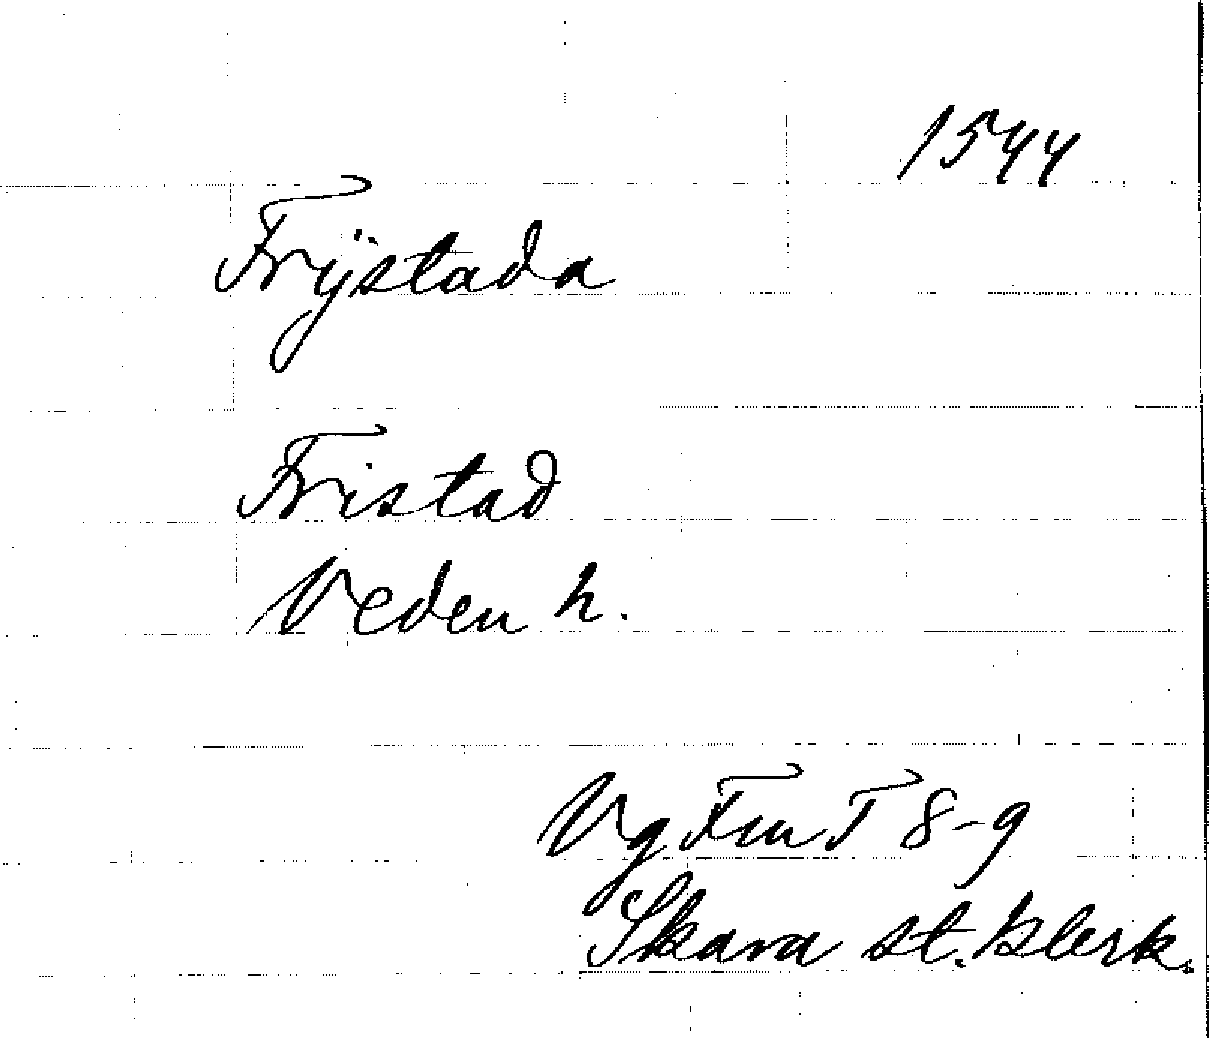 1544
Frÿstada
Fristad
Veden h.
Vg Fmt 8-9
Skara st. klerk.